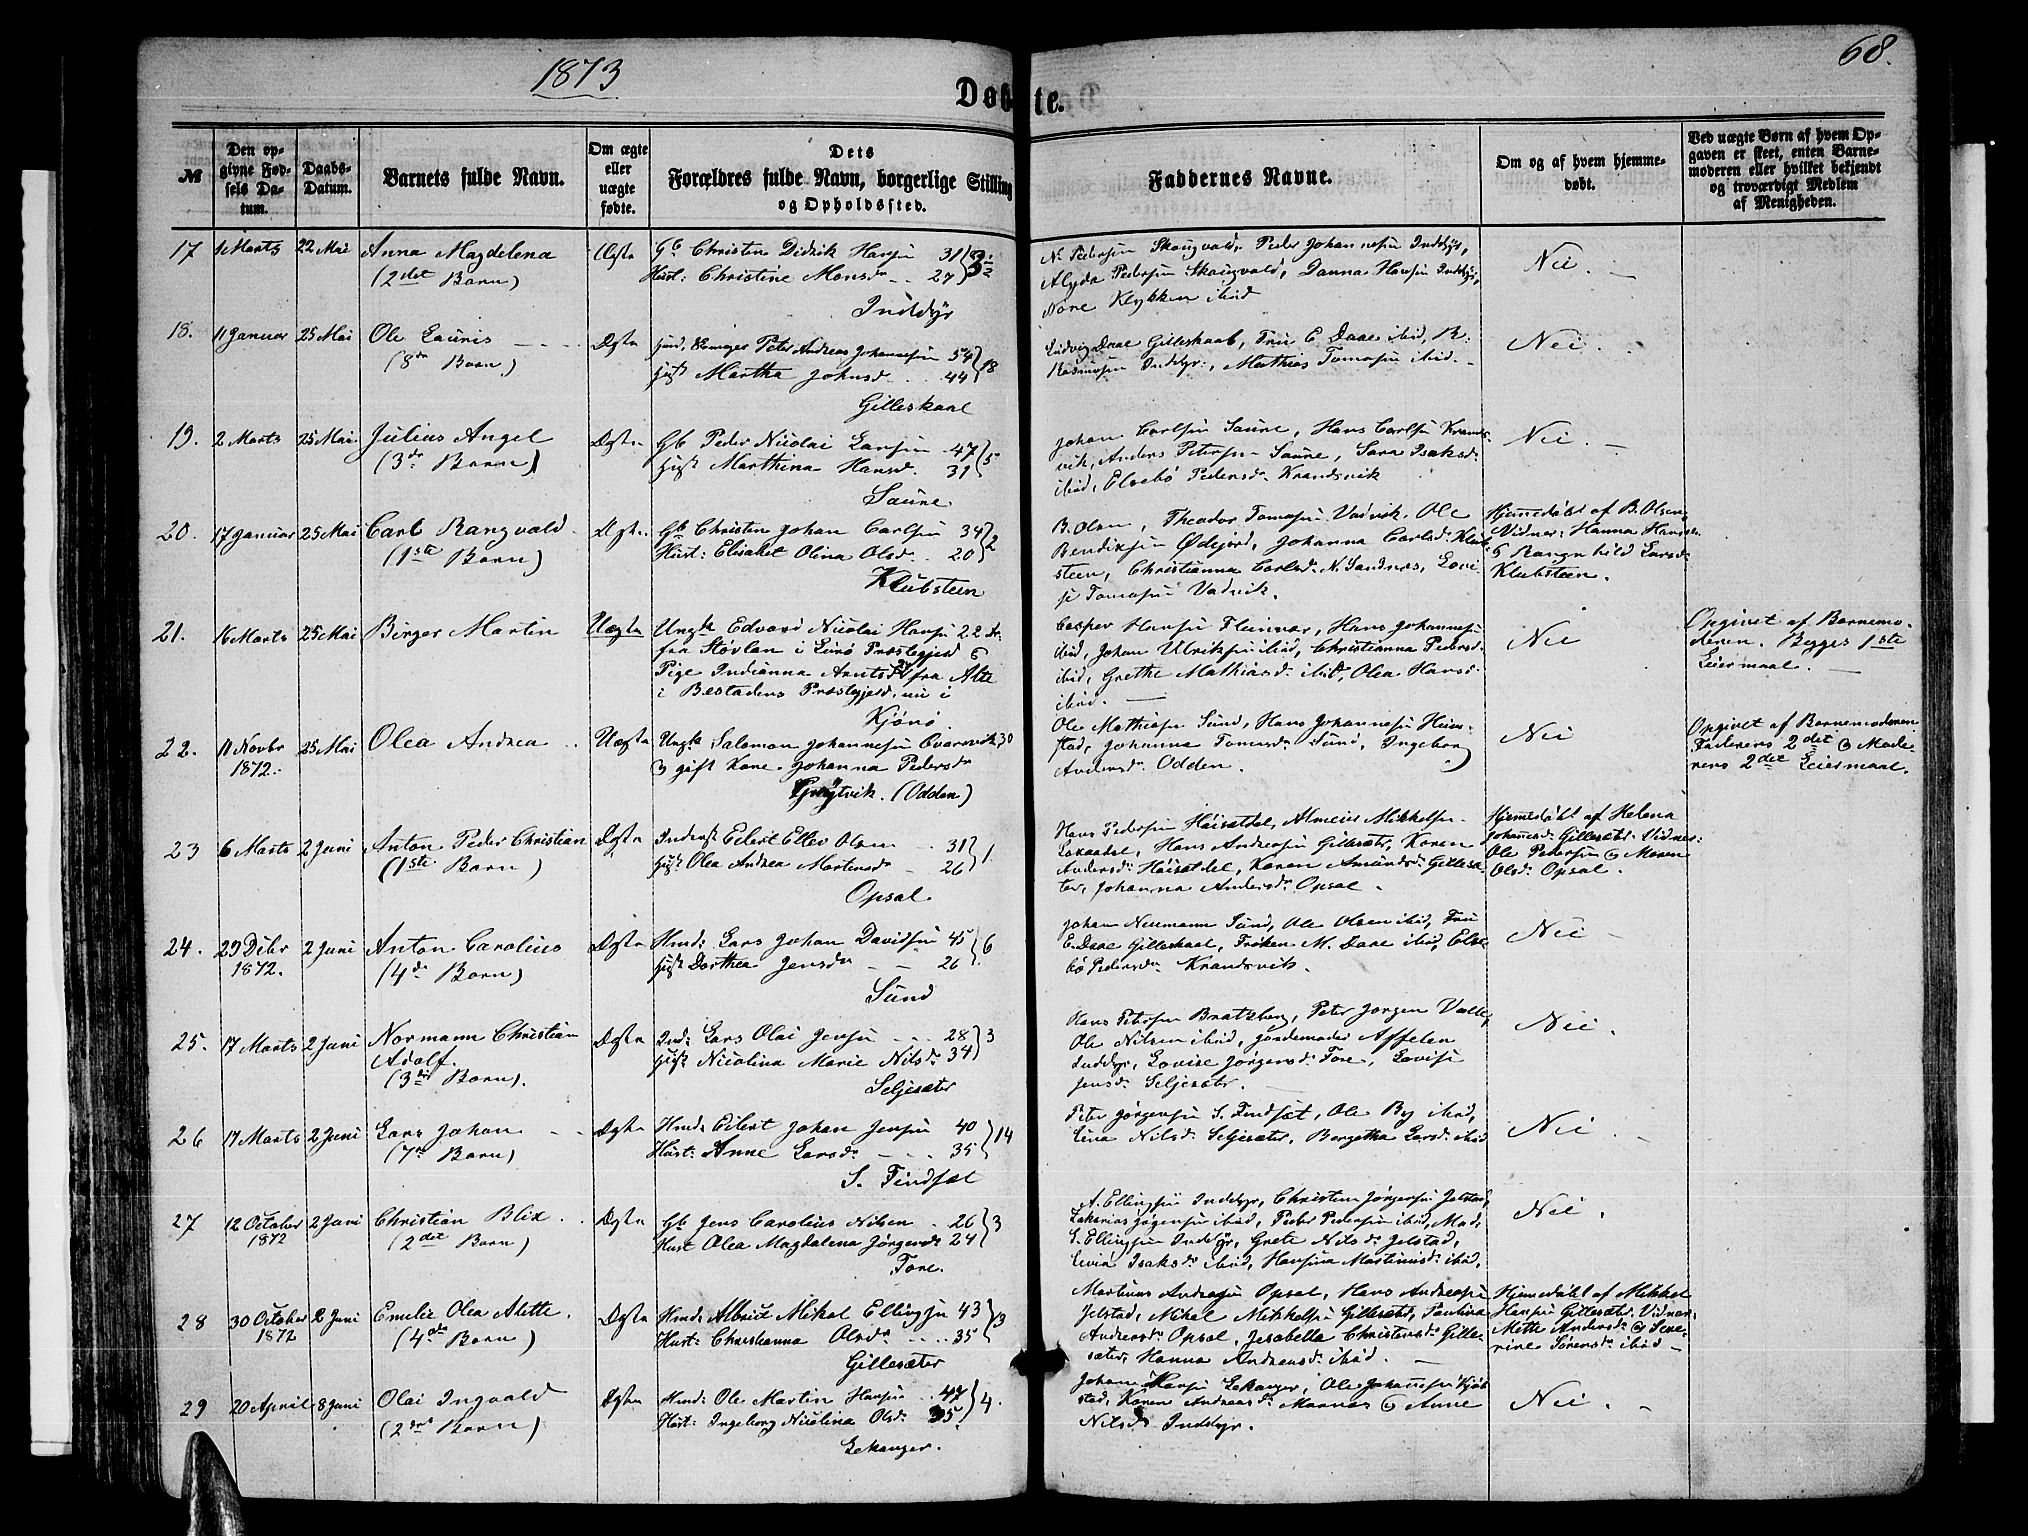 1873
68.
Døbte.
№
Den opgivne Fødsels Datum.
Daabs-Datum.
Barnets fulde Navn.
Om ægte eller uægte fødte.
Dets Forældres fulde Navn, borgerlige Stilling og Opholdssted.
Faddernes Navne.
Om og af hvem hjemmedøbt.
Ved uægte Børn af hvem Opgaven er skeet, enten Barnemoderen eller hvilket bekjendt og troværdigt Medlem af Menigheden.
17 1 Marts 22 Mai Anna Magdelena Ægte Christen Didrik Hansen 31
(2det Barn) Hust: Christine Monsdr 27
Inddyr
N. Pedersen Skougvald, Peder Johannesen Inddyr,
Alyda Pedersen Skougvald, Danna Hansen Inddyr,
Klykken ibid
Nei.
18. 11 Januar 25 Mai Ole Lauris Ægte Peter Andreas Johannesen 54
(8de Barn) Martha Johnsd 44 18
Gilleskaal
Ludvig Daae Gilleskaal, Fru E. Daae ibid, R.
Rasmusen Inddyr, Mathias Tomasen ibid.
Nei.
19. 2 Marts 25 Mai Julius Angel Ægte Gb Peder Nicolai Larsen 47
(3de Barn) Marthina Hansd. 31 5
Saure
Johan Carlsen Saure, Hans Carlsen Krands-
vik, Anders Petersen Saure, Sara Isaksd.
ibid, Elsebø Pedersd. Krandsvik
Nei.
20. 17 Januar 25 Mai Carl Rangvald Ægte Gb Christen Johan Carlsen 34
(1ste Barn) Hust: Elisabet Olina Olsd. 20 2
Klubsteen
B. Olsen, Theodor Tomasen Vadvik, Ole
Bendiksen Ødejord, Johanna Carlsd. Klub-
steen, Christianna Carlsd. N. Sandnæs, Lovi-
se Tomasen Vadvik.
Hjemedøbt af B. Olsen,
Vidner: Hanna Hansen
Rangnhild Larsd.
Klubsteen.
21. 16 Marts 25 Mai Birger Martin Uægte Ungk Edvard Nicolai Hansen 22 Ar.
fra Støvlan i Lurø Præstegjeld
Pige Indianna Arntsd fra Alte
i Bestadens Præstegjeld, nu i
Kjønø.
Casper Hansen Fleinvær, Hans Johannesen
ibid, Johan Ulriksen ibid, Christianna Pedersd.
ibid, Grethe Mathiasd. ibid, Olea Hansd.
ibid.
Nei
Opgivet af Barnemo-
deren. Begges 1ste
Leiermaal.
22. 11 Novbr 25 Mai Olea Andrea Uægte Ungk Salomon Johannesen Ovarsvik 30
1872. gift Kone Johanna Pedersdr
(Odden)
Ole Mathisen Sund, Hans Johannesen Heim-
stad, Johanna Tomasd. Sund, Ingeborg
Andersdr Odden.
Nei
Opgivet af Barnemoderen
Faderens 2det & Mode-
rens 2det Leiermaal.
23 6 Marts 2 Juni Anton Peder Christian Ægte Inderst Eilert Ellev Olsen 31
(1ste Barn) Olea Andrea Mortensdr 26 1.
Opsal.
Hans Pedersen Høisætdel, Almeier Mikkelsen
Hans Andreasen Gillesætr, Karen
Andersdr Høisætdel, Karen Amundsdr Gillesæ-
ter, Johanna Andersdr Opsal.
Hjemedøbt af Helena
Johannesd. Gillesætr. Vidner
Ole Pedersen & Maren
Olsdr Opsal.
24. 29 Debr 2 Juni Anton Carolius Ægte Hmd: Lars Johan Davidsen 45
1872. (4de Barn) Dorthea Jensdr 26 6
Sund
Johan Neumann Sund, Ole Olsen ibid, Fru
E. Daae Gilleskaal, Frøken M. Daae ibid, Else-
bø Pedersdr Krandsvik.
Nei
25. 17 Marts 2 Juni Normann Christian Ægte Ind: Lars Olai Jensen 28 3
Adolf. Nicolina Marie Nilsdr 34
(3die Barn). Seljesæter
Hans Petersen Bratzberg, Peter Jørgen Valle,
Ole Nilsen ibid, Jordemoder Affelen
Inddyr, Lovise Jørgensdr Fore, Lovise
Jensdr Seljesætr.
Nei.
26 17 Marts 2 Juni Lars Johan Ægte Hmd: Eilert Johan Jensen 40
(7de Barn) Hust: Anne Larsdr 35 14
S. Findset
Peter Jørgensen S. Findset, Ole By ibid,
Lina Nilsdr Seljesæter, Bergetha Larsdr ibid
Nei.
27 12 October 2 Juni Christian Blix Ægte Gb Jens Carolius Nilsen 26 3
1872 (2det Barn) Hust Olea Magdalena Jørgensdr 24
Fore.
A. Ellingsen Inddyr, Christen Jørgensen Jelstad,
Zakarias Jørgensen ibid, Peder Pedersen ibid, Mad.
S. Ellingsen Inddyr, Grete Nilsdr Jelstad,
Isaksdr ibid, Hansina Martinusdr ibid.
Nei.
28 30 October 2 Juni Emelie Olea Alette Ægte Hmd: Albrict Mikal Ellingsen 43
1872 (4de Barn) Hust: Christianna Olsdr 35 3
Gillesæter
Martinus Andreasen Opsal, Hans Andreasen
Jelstad, Mikal Mikkelsen Gillesætr, Paulina
Andreasdr Opsal, Jesabella Christensdr Gille-
sæter, Hanna Andreasdr ibid.
Hjemedøbt af Mikkel
Hansen Gillesætr. Vidner
Mette Andersdr & Seve-
rine Sørensdr ibid
29 20 April 8 Juni Olai Ingvald Ægte Hmd: Ole Martin Hansen 47
(2det Barn) Hust: Ingeborg Nicolina Olsdr 35 4.
Lekanger.
Johan Hansen Lekanger, Ole Johannesen Kjøb-
stad, Karen Andreasdr Marnæs & Anne
Nilsdr Inddyr.
Nei.